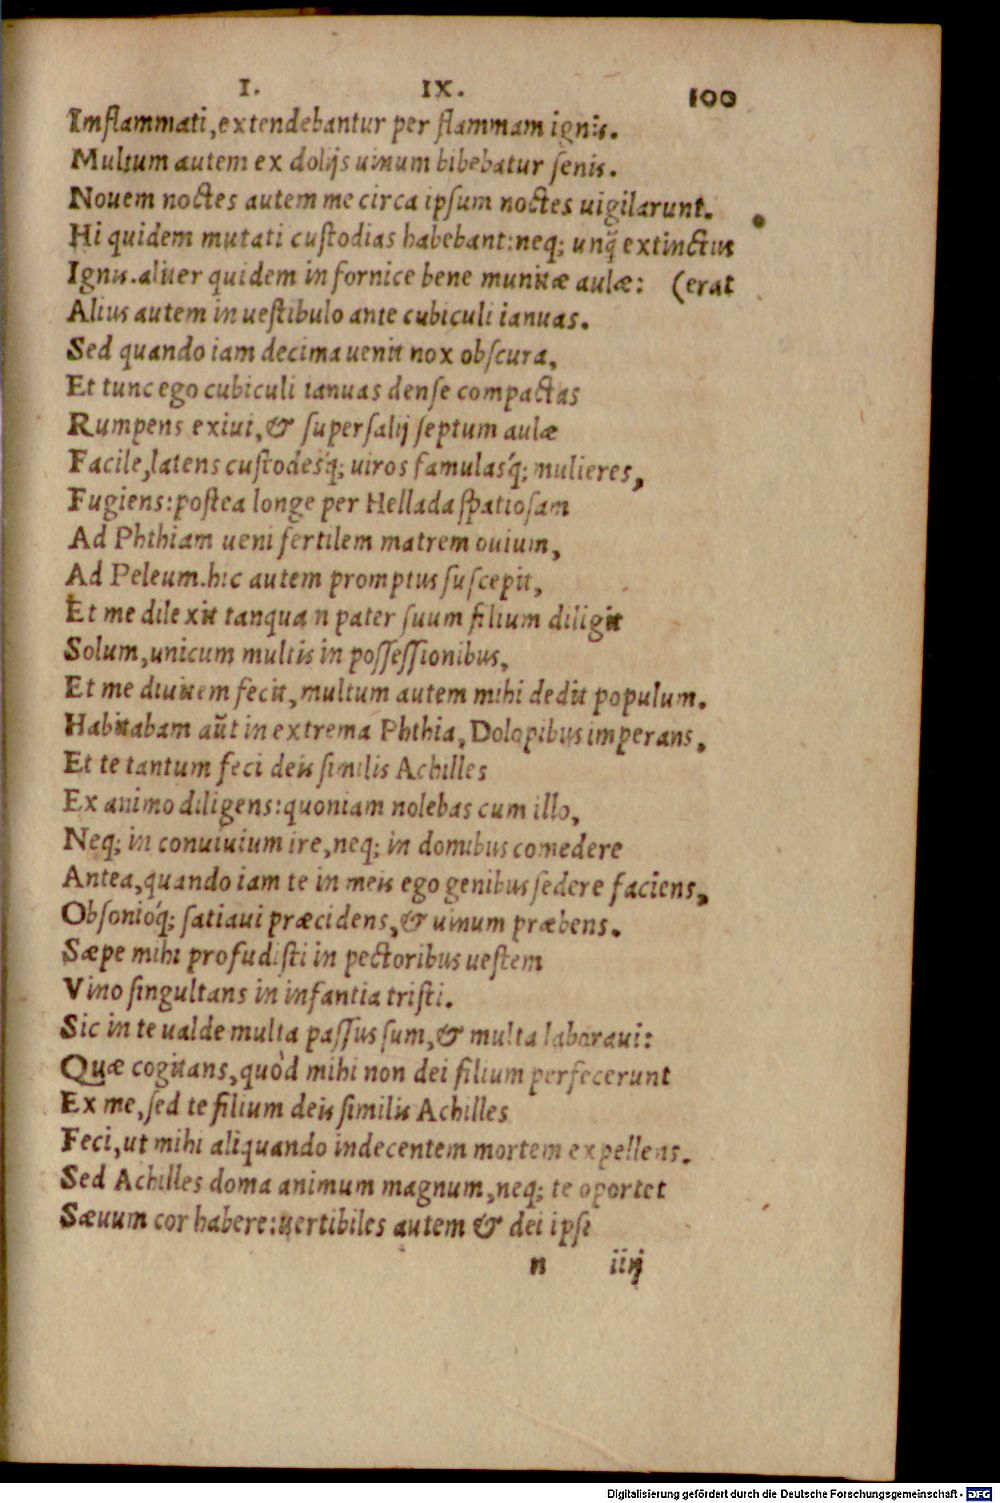 I. IX. 100
Imflammati,extendebantur per flammam ignis.
Multum autem ex dolijs uinum bibebatur ſenis.
Nouem noctes autem me circa ipſum noctes uigilarunt.
Hi quidem mutati cuſtodias habebant:neq; unq̃ extinctus
Ignis.aliter quidem in fornice bene munitæ aulæ: (erat
Alius autem in ueſtibulo ante cubiculi ianuas.
Sed quando iam decima uenit nox obſcura,
Et tunc ego cubiculi ianuas denſe compactas
Rumpens exiui,& ſuperſalij ſeptum aulæ
Facile,latens cuſtodesq́; uiros famulasq́; mulieres,
Fugiens:poſtea longe per Hellada ſpatioſam
Ad Phthiam ueni fertilem matrem ouium,
Ad Peleum.hic autem promptus ſuſcepit,
Et me dilexit tanqua n pater ſuum filium diligit
Solum,unicum multis in poſſeſſionibus,
Et me diuitem fecit,multum autem mihi dedit populum.
Habitabam aũt in extrema Phthia, Dolopibus imperans,
Et te tantum feci deis ſimilis Achilles
Ex animo diligens:quoniam nolebas cum illo,
Neq; in conuiuium ire,neq; in domibus comedere
Antea,quando iam te in meis ego genibus ſedere faciens,
Obſonioq́; ſatiaui præcidens,& uinum præbens.
Sæpe mihi profudiſti in pectoribus ueſtem
Vino ſingultans in infantia triſti.
Sic in te ualde multa paſſus ſum,& multa laboraui:
Quæ cogitans,quòd mihi non dei filium perfecerunt
Ex me,ſed te filium deis ſimilis Achilles
Feci,ut mihi aliquando indecentem mortem expellens.
Sed Achilles doma animum magnum,neq; te oportet
Sæuum cor habere:uertibiles autem & dei ipſi
n iiij
Digitalisierung gefördert durch die Deutsche Forschungsgemeinschaft - DFG